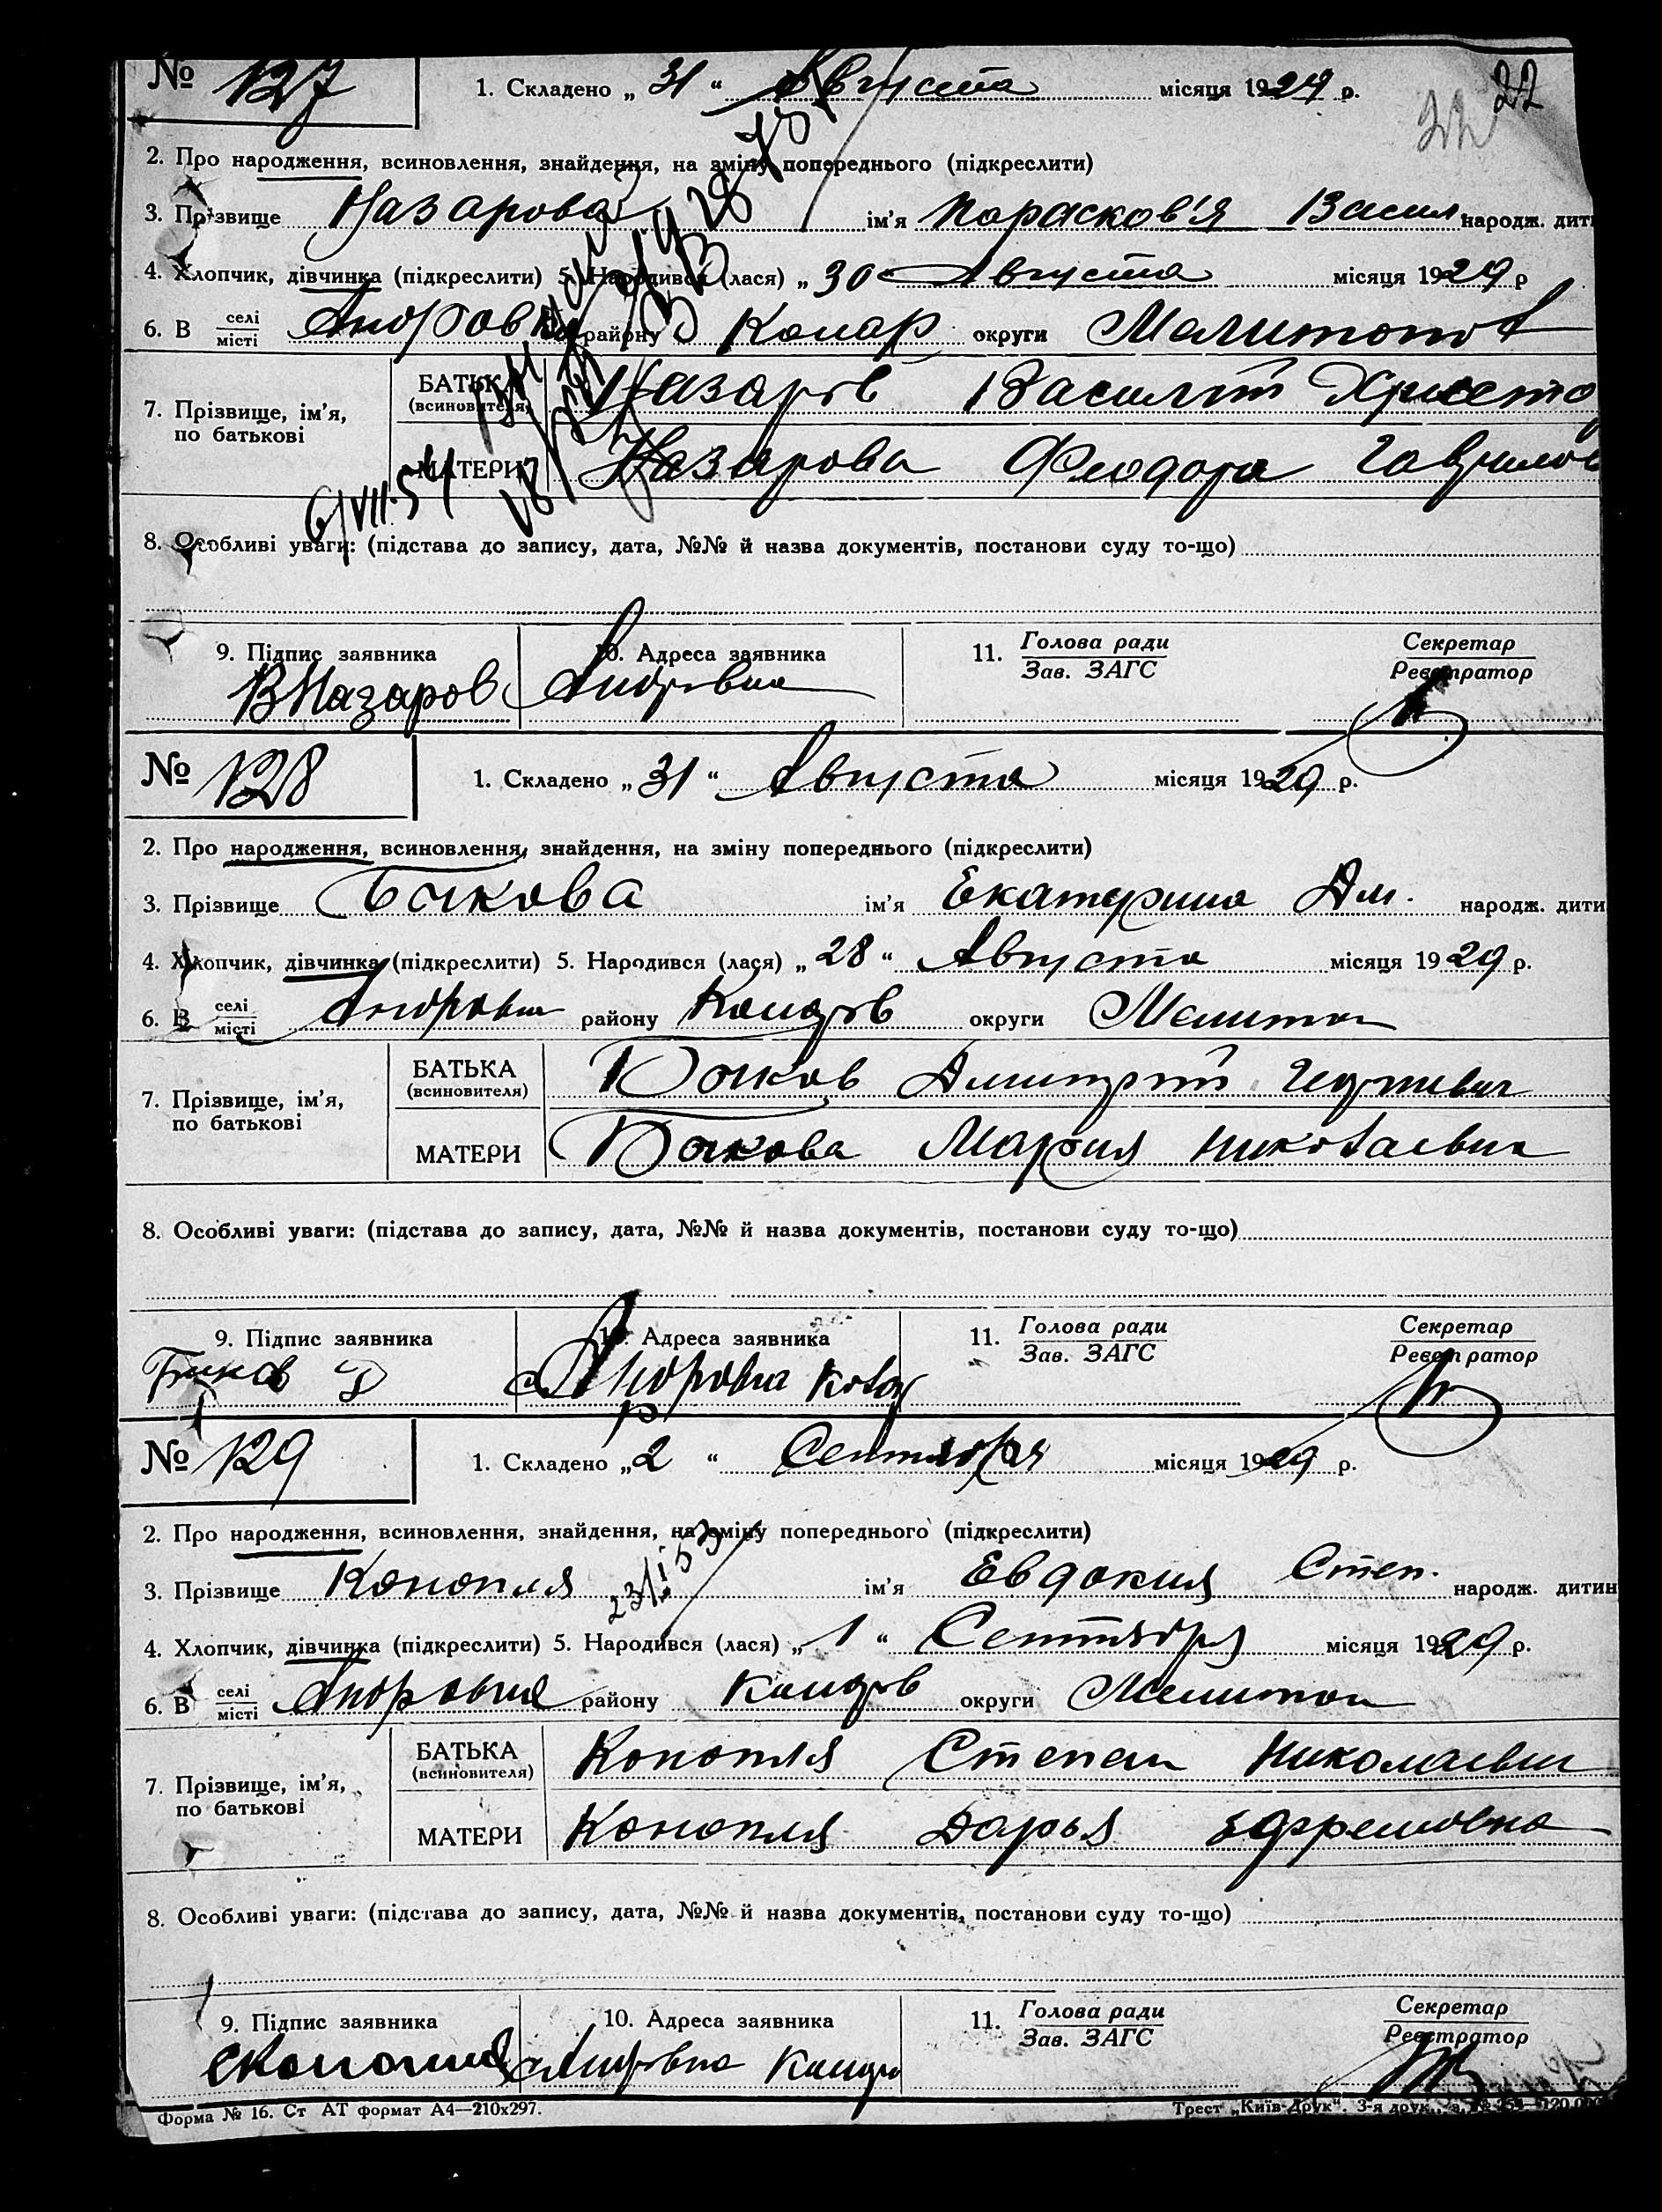 № 127 1. Складено „ 31 “ Августа місяця 1929 р. 22
2. Про народження, всиновлення, знайдення, на зміну попереднього (підкреслити)
3. Прізвище Назарова ім'я Парасков'я Васил народж. дит
4. Хлопчик, дівчинка (підкреслити) 5. Народився (лася) „ 30 “ Августа місяця 1929 р
6. В селі/місті Андровка району Коларов округи Мелитопол
7. Прізвище, ім'я, по батькові
БАТЬКА (всиновителя) Назаров Василий Христо
МАТЕРИ Назарова Феодора Гаврилов
6/VII-54
8. Особливі уваги: (підстава до запису, дата, №№ й назва документів, постанови суду то-що)
9. Підпис заявника 10. Адреса заявника 11. Голова ради/Зав. ЗАГС Секретар/Реєстратор
ВНазаров Андровка
№ 128 1. Складено „ 31 “ Августа місяця 1929 р.
2. Про народження, всиновлення, знайдення, на зміну попереднього (підкреслити)
3. Прізвище Бичкова ім'я Екатерина Дм. народж. дити
4. Хлопчик, дівчинка (підкреслити) 5. Народився (лася) „ 28 “ Августа місяця 1929 р.
6. В селі/місті Андровка району Коларов округи Мелитоп
7. Прізвище, ім'я, по батькові
БАТЬКА (всиновителя) Дмитрий
МАТЕРИ Мария Николаевна
8. Особливі уваги: (підстава до запису, дата, №№ й назва документів, постанови суду то-що)
9. Підпис заявника 10. Адреса заявника 11. Голова ради/Зав. ЗАГС Секретар/Реєстратор
с Андровка Колар
р
№ 129 1. Складено „ 2 “ Сентября місяця 1929 р.
2. Про народження, всиновлення, знайдення, на зміну попереднього (підкреслити)
23/I 53
3. Прізвище Конопля ім'я Евдокия Степ. народж. дитин
4. Хлопчик, дівчинка (підкреслити) 5. Народився (лася) „ 1 “ Сентября місяця 1929 р.
6. В селі/місті Андровка району Коларов округи Мелитоп
7. Прізвище, ім'я, по батькові
БАТЬКА (всиновителя) Конопля Степан Николаевич
МАТЕРИ Конопля Дарья Ефремовна
8. Особливі уваги: (підстава до запису, дата, №№ й назва документів, постанови суду то-що)
9. Підпис заявника 10. Адреса заявника 11. Голова ради/Зав. ЗАГС Секретар/Реєстратор
СКонопля Андровка Колар
Форма № 16. Ст АТ формат А4—210х297. Трест „Київ-Друк“. 3-я друк.